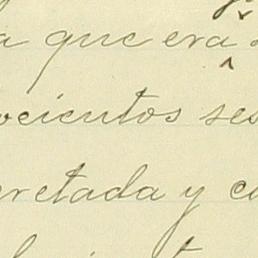 a que era
ocientos ses
retada y co